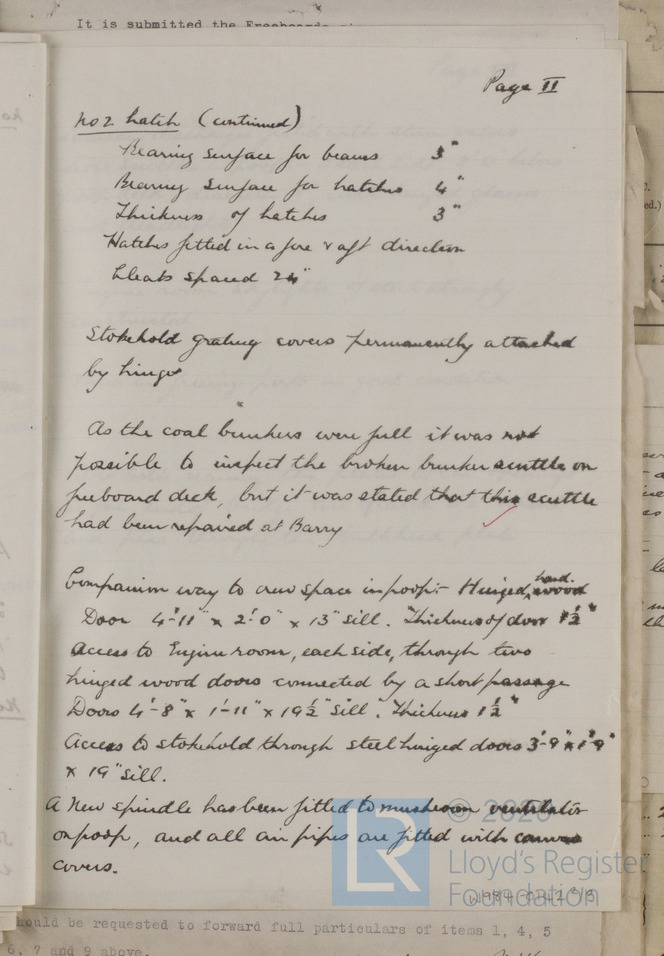 It is submitted the Freeboards
Page II
No 2 hatch (continued)
Bearing surface for beams 3"
Bearing surface for hatches 4"
Thickness of hatches 3"
Hatches fitted in a fore & aft direction
Cleats spaced 24"
Stokehold grating covers permanently attached
by hinges
As the coal bunkers were full it was not
possible to inspect the broken bunker scuttle on
freeboard deck, but it was stated that this scuttle
had been repaired at Barry
Companion way to crew space in poop:- Hinged hard wood
Door 4'-11" x 2'-0" x 13" sill. Thickness of door 1½"
Access to Engine room, each side, through two
hinged wood doors connected by a short passage
Doors 4'-8" x 1'-11" x 19½" sill. Thickness 1½"
Access to stokehold through steel hinged doors 3'-9" x 1'-9"
x 19" sill.
A new spindle has been fitted to mushroom ventilator
on poop, and all air pipes are fitted with canvas
covers.
LR
© 2020
Lloyd's Register
Foundation
hould be requested to forward full particulars of items 1, 4, 5
6, 7 and 9 above.